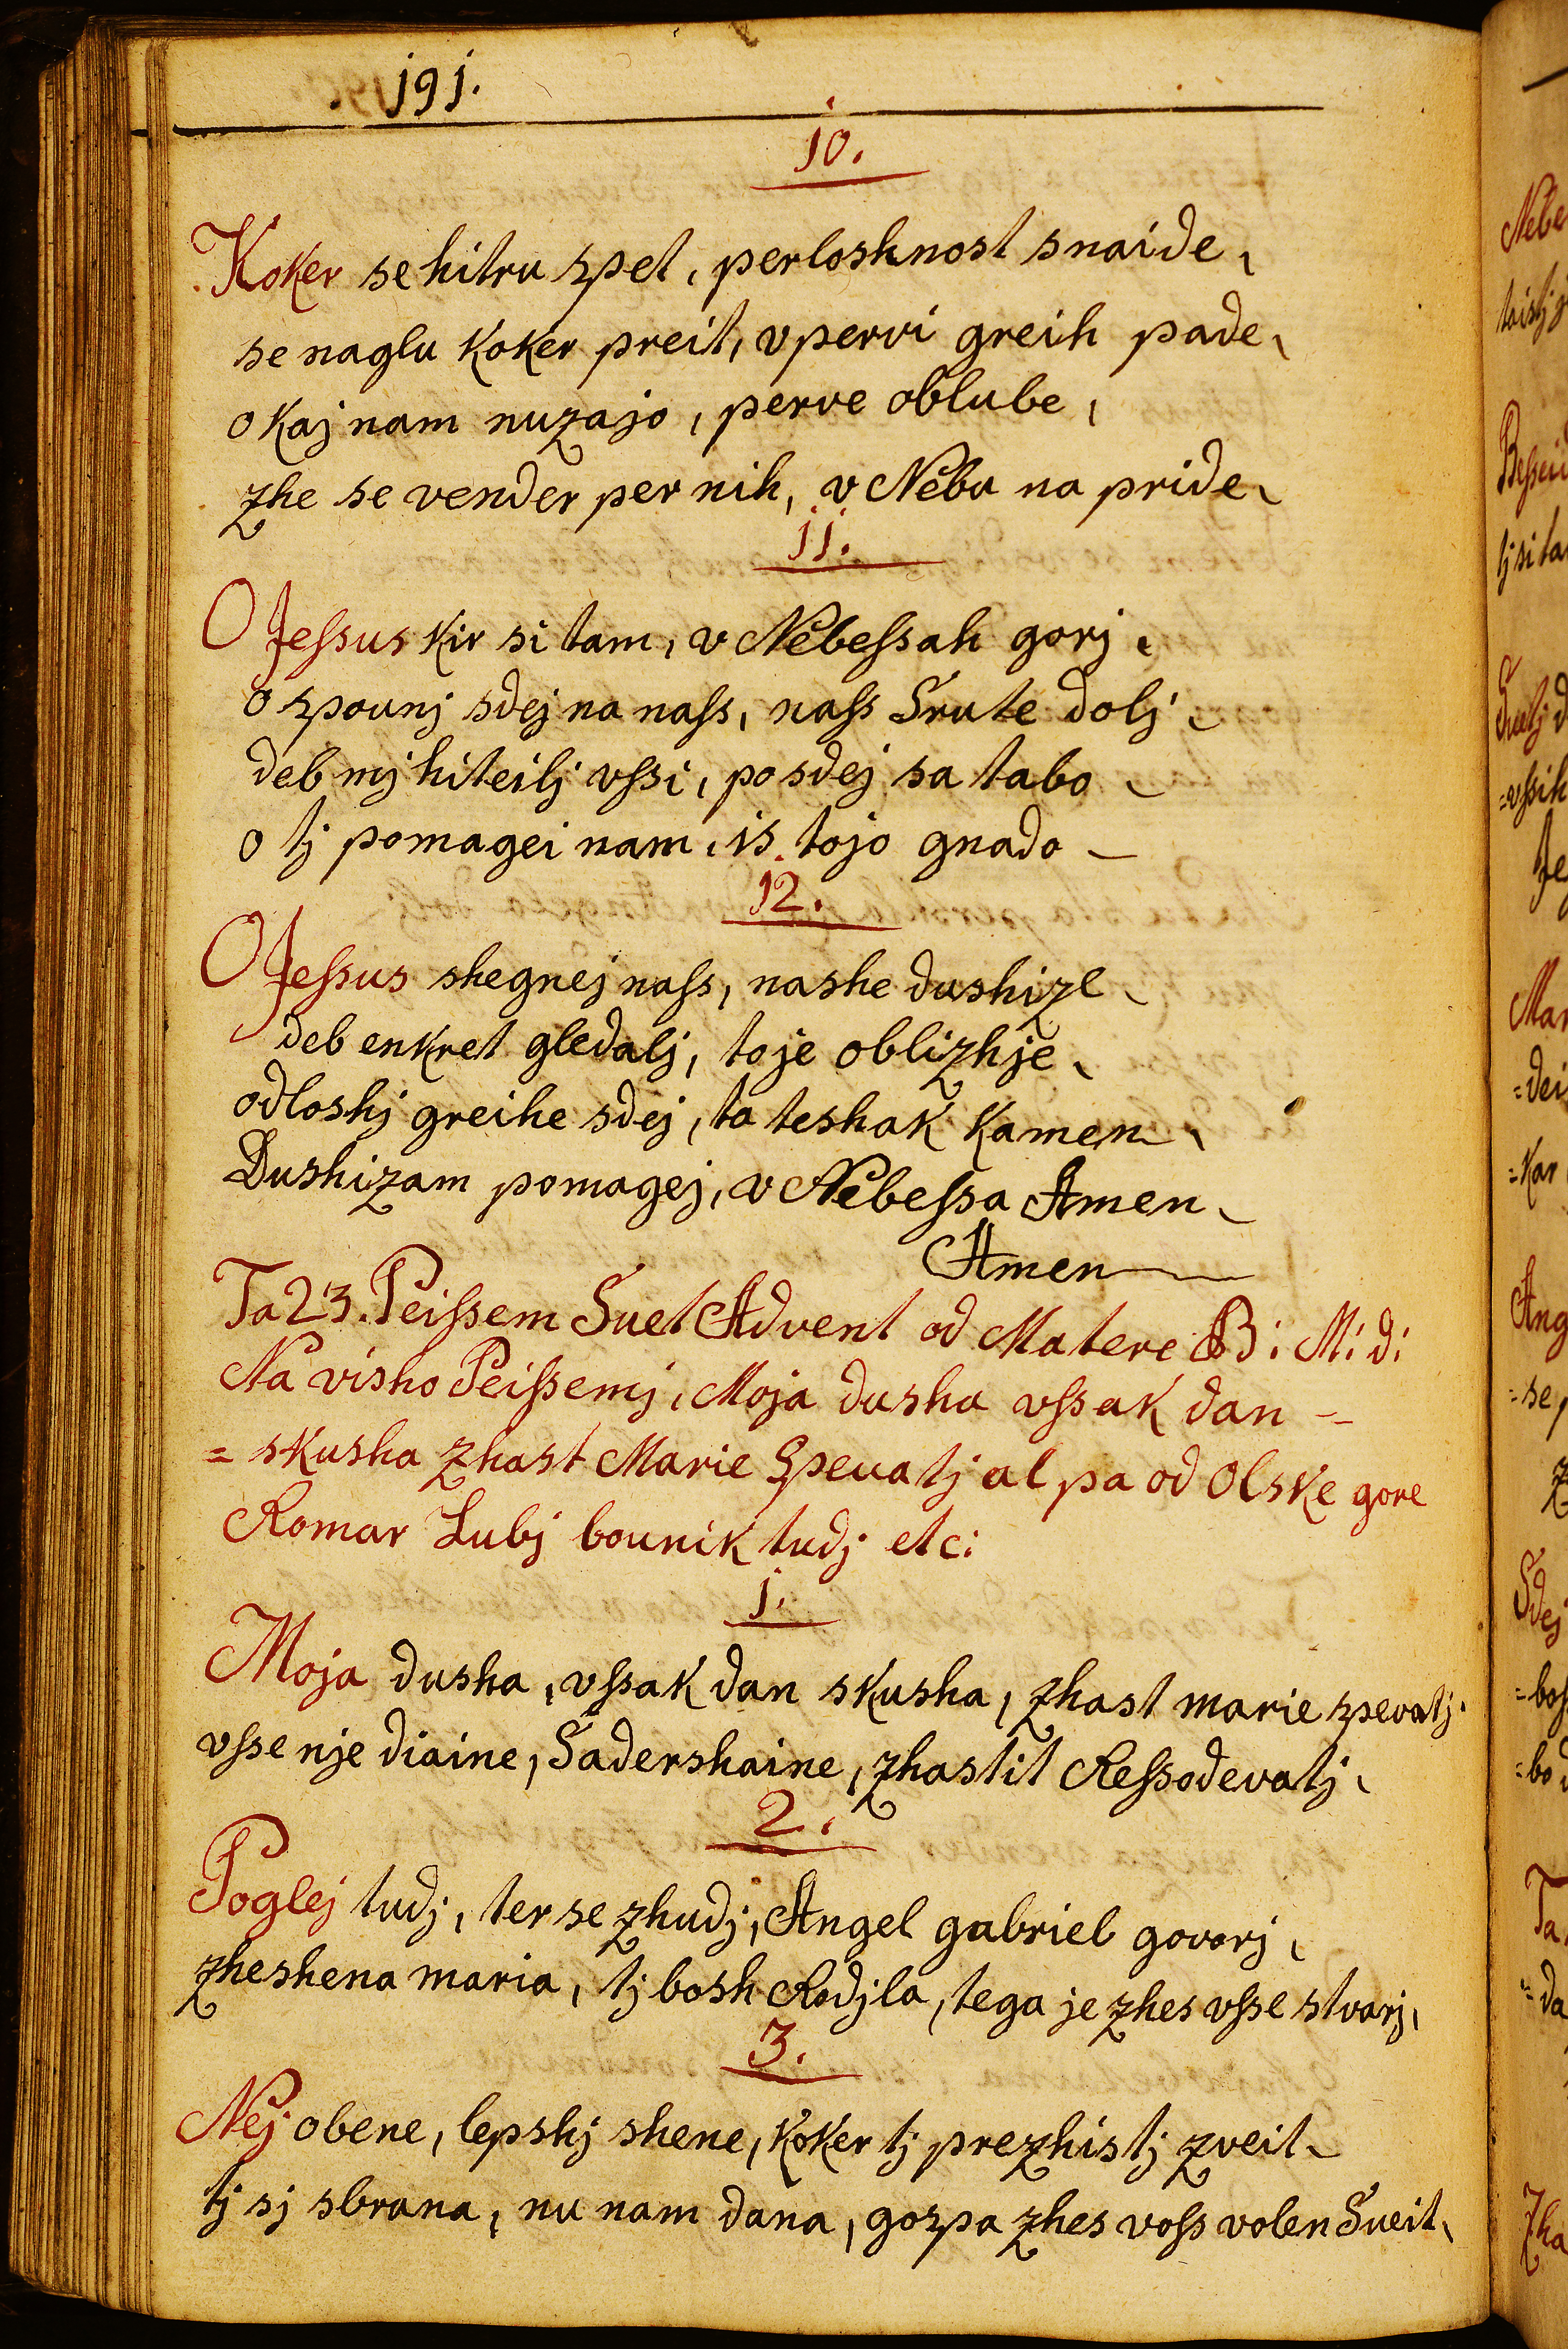 191.
10.
Koker se hitru zpet, perloshnost snaide,
se naglu koker preit, v pervi greih pade,
o kaj nam nuzajo, perve oblube,
zhe se vender per nih, v Nebu na pride,
11.
O Jeſsus kir si tam, v Nebeſsah gorj,
o zpounj sdej na naſs, naſs Srute dolj,
deb mj hiteilj vſsi, po sdej sa tabo,
o tj pomagei nam, is tojo gnado –
12.
O Jeſsus shegnej naſs, nashe dushize,
deb enkret gledalj, to je oblizhje,
odloshj greihe sdej, ta teshak kamen,
Dushizam pomagej, v Nebeſsa Amen,
Amen
Ta 23. Peiſsem Suet Advent od Matere B: M: d:
Na visho Peiſsemj, Moja dusha vſsak dan –
= skusha zhast Marie Spevatj al pa od Olske gore
Romar Lubj bounik tudj etc:
1.
Moja dusha, vſsak dan skusha, zhast marie zpevatj.
vſse nje diaine, Sadershaine, zhastit Reſsodevatj,
2.
Poglej tudj, ter se zhudj, Angel gabriel govorj,
zheshena maria, tj bosh Rodjla, tega je zhes vſse stvarj,
3.
Nej obene, lepshj shene, koker tj prezhistj zveit,
tj sj sbrana, nu nam dana, gozpa zhes voſs volen Sueit,